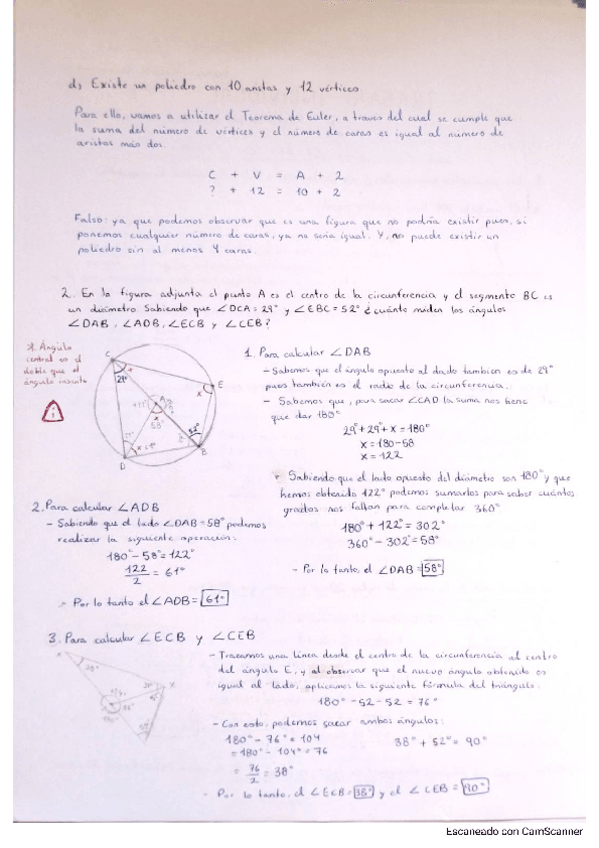 d) Existe un poliedro con 10 aristas y 12 vértices
Para ello, vamos a utilizar el Teorema de Euler, a través del cual se cumple que
la suma del número de vértices y el número de caras es igual al número de
aristas más dos.
C + V = A + 2
? + 12 = 10 + 2
Falso: ya que podemos observar que es una figura que no podría existir pues, si
ponemos cualquier número de caras, ya no sería igual. Y, no puede existir un
poliedro sin al menos 4 caras.
2. En la figura adjunta el punto A es el centro de la circunferencia y el segmento BC es
un diámetro Sabiendo que ∠DCA = 29° y ∠EBC = 52° ¿cuánto miden los ángulos
∠DAB, ∠ADB, ∠ECB y ∠CEB?
* Ángulo
central es el
doble que el
ángulo
C
29°
E
A
58°
52°
D
B
1. Para calcular ∠DAB
- Sabemos que el ángulo opuesto al dado también es de 29°
pues también es el radio de la circunferencia.
- Sabemos que, para sacar ∠CAD la suma nos tiene
que dar 180°
29° + 29° + x = 180°
x = 180 - 58
x = 122
Sabiendo que el lado opuesto del diámetro son 180° y que
hemos obtenido 122° podemos sumarlos para saber cuántos
grados nos faltan para completar 360°
180° + 122° = 302°
360° - 302° = 58°
- Por lo tanto, el ∠DAB = 58°
2. Para calcular ∠ADB
- Sabiendo que el lado ∠DAB = 58° podemos
realizar la siguiente operación:
180° - 58° = 122°
122/2 = 61°
- Por lo tanto el ∠ADB = 61°
3. Para calcular ∠ECB y ∠CEB
- Trazamos una línea desde el centro de la circunferencia al centro
del ángulo E, y al observar que el nuevo ángulo obtenido es
igual al lado, aplicamos la siguiente fórmula del triángulo.
180° - 52 - 52 = 76°
- Con esto, podemos sacar ambos ángulos:
180° - 76° = 104
= 180° - 104° = 76
= 76/2 = 38°
38° + 52° = 90°
- Por lo tanto, el ∠ECB = 38° y el ∠CEB = 90°
Escaneado con CamScanner